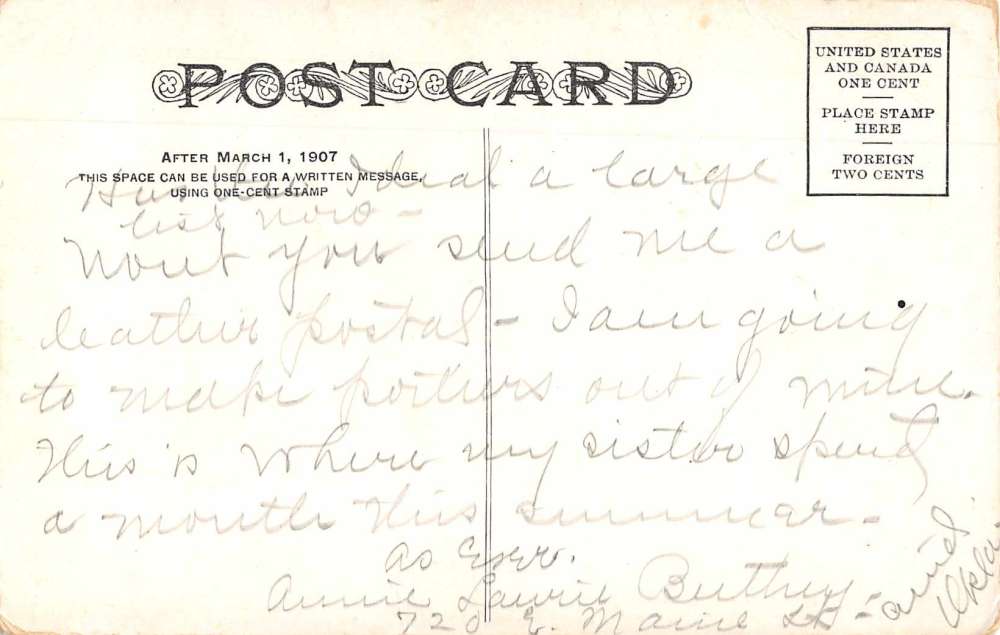 POST CARD
UNITED STATES
AND CANADA
ONE CENT
PLACE STAMP
HERE
FOREIGN
TWO CENTS
AFTER MARCH 1, 1907
THIS SPACE CAN BE USED FOR A WRITTEN MESSAGE,
USING ONE-CENT STAMP
I a large
list now -
Wont you send me a
leather postal - I am going
to make portiers out of mine.
This is where my sister spent
a month this summer -
As Ever.
Annie Laurie Buttrey
720 E. Maine St -
Enid
Okla.